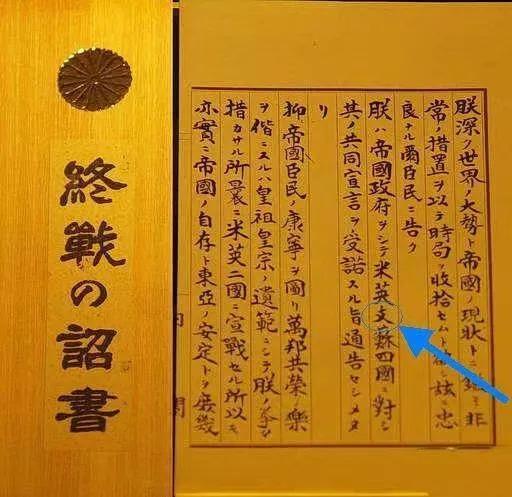 終戰の詔書
朕深ク世界ノ大勢ト帝國ノ現狀トニ鑑ミ非
常ノ措置ヲ以テ時局ヲ收拾セムト欲シ玆ニ忠
良ナル爾臣民ニ告ク
朕ハ帝國政府ヲシテ米英支蘇四國ニ對シ
其ノ共同宣言ヲ受諾スル旨通告セシメタ
リ
抑帝國臣民ノ康寧ヲ圖リ萬邦共榮ノ樂
ヲ偕ニスルハ皇祖皇宗ノ遺範ニシテ朕ノ拳々
措カサル所曩ニ米英二國ニ宣戰セル所以モ
亦實ニ帝國ノ自存ト東亞ノ安定トヲ庶幾